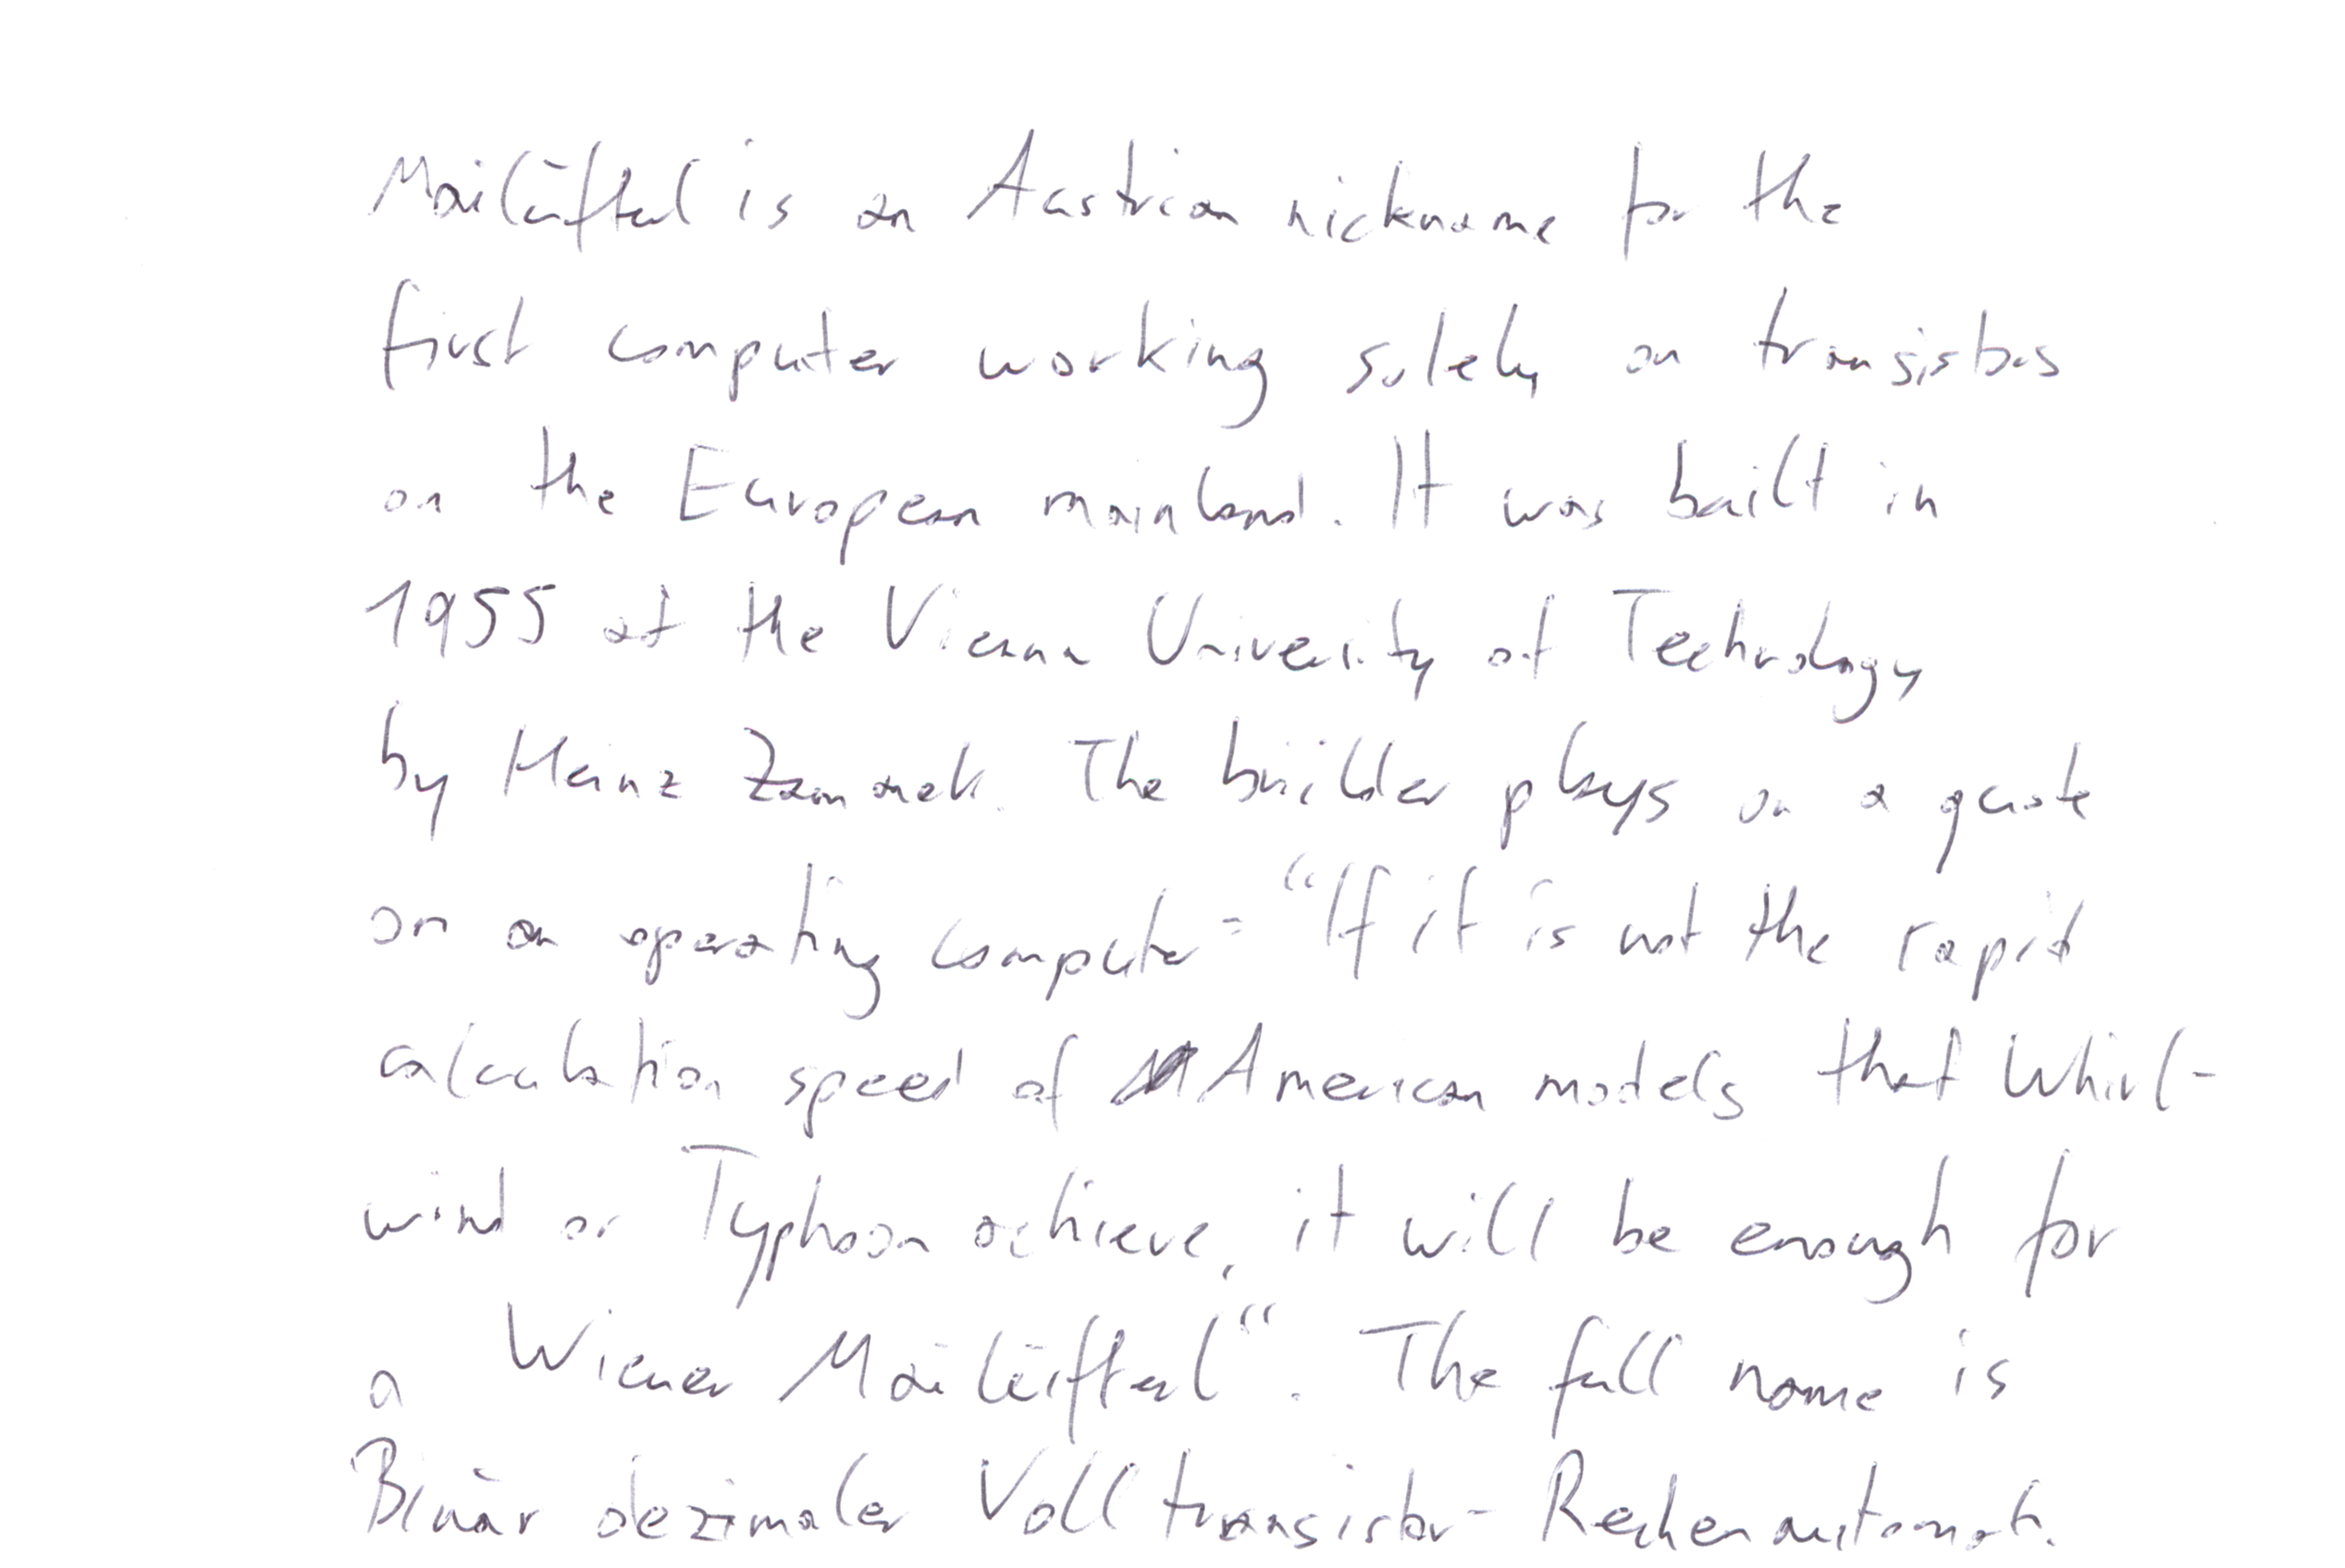 Mailüfterl is an Austrian nickname for the
first computer working solely on transistors
on the European mainland. It was built in
1955 at the Vienna University of Technology
by Heinz Zemanek. The builder plays on a quote
on an operating computer: "If it is not the rapid
calculation speed of American models that Whirl-
wind or Typhoon achieve, it will be enough for
a Wiener Mailüfterl". The full name is
Binär dezimaler Volltransistor-Rechenautomat.